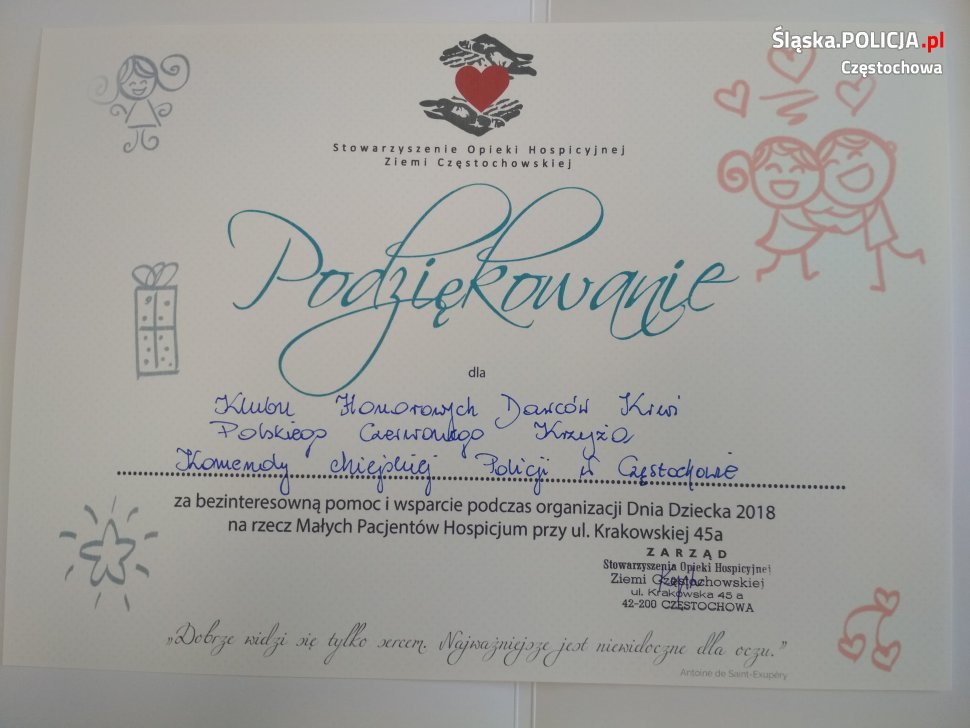 Śląska.POLICJA.pl
Częstochowa
Stowarzyszenie Opieki Hospicyjnej
Ziemi Częstochowskiej
Podziękowanie
dla
Klubu Honorowych Dawców Krwi
Polskiego Czerwonego Krzyża
Komendy Miejskiej Policji w Częstochowie
za bezinteresowną pomoc i wsparcie podczas organizacji Dnia Dziecka 2018
na rzecz Małych Pacjentów Hospicjum przy ul. Krakowskiej 45a
ZARZĄD
Stowarzyszenia Opieki Hospicyjnej
Ziemi Częstochowskiej
ul. Krakowska 45 a
42-200 CZĘSTOCHOWA
„Dobrze widzi się tylko sercem. Najważniejsze jest niewidoczne dla oczu.”
Antoine de Saint-Exupéry